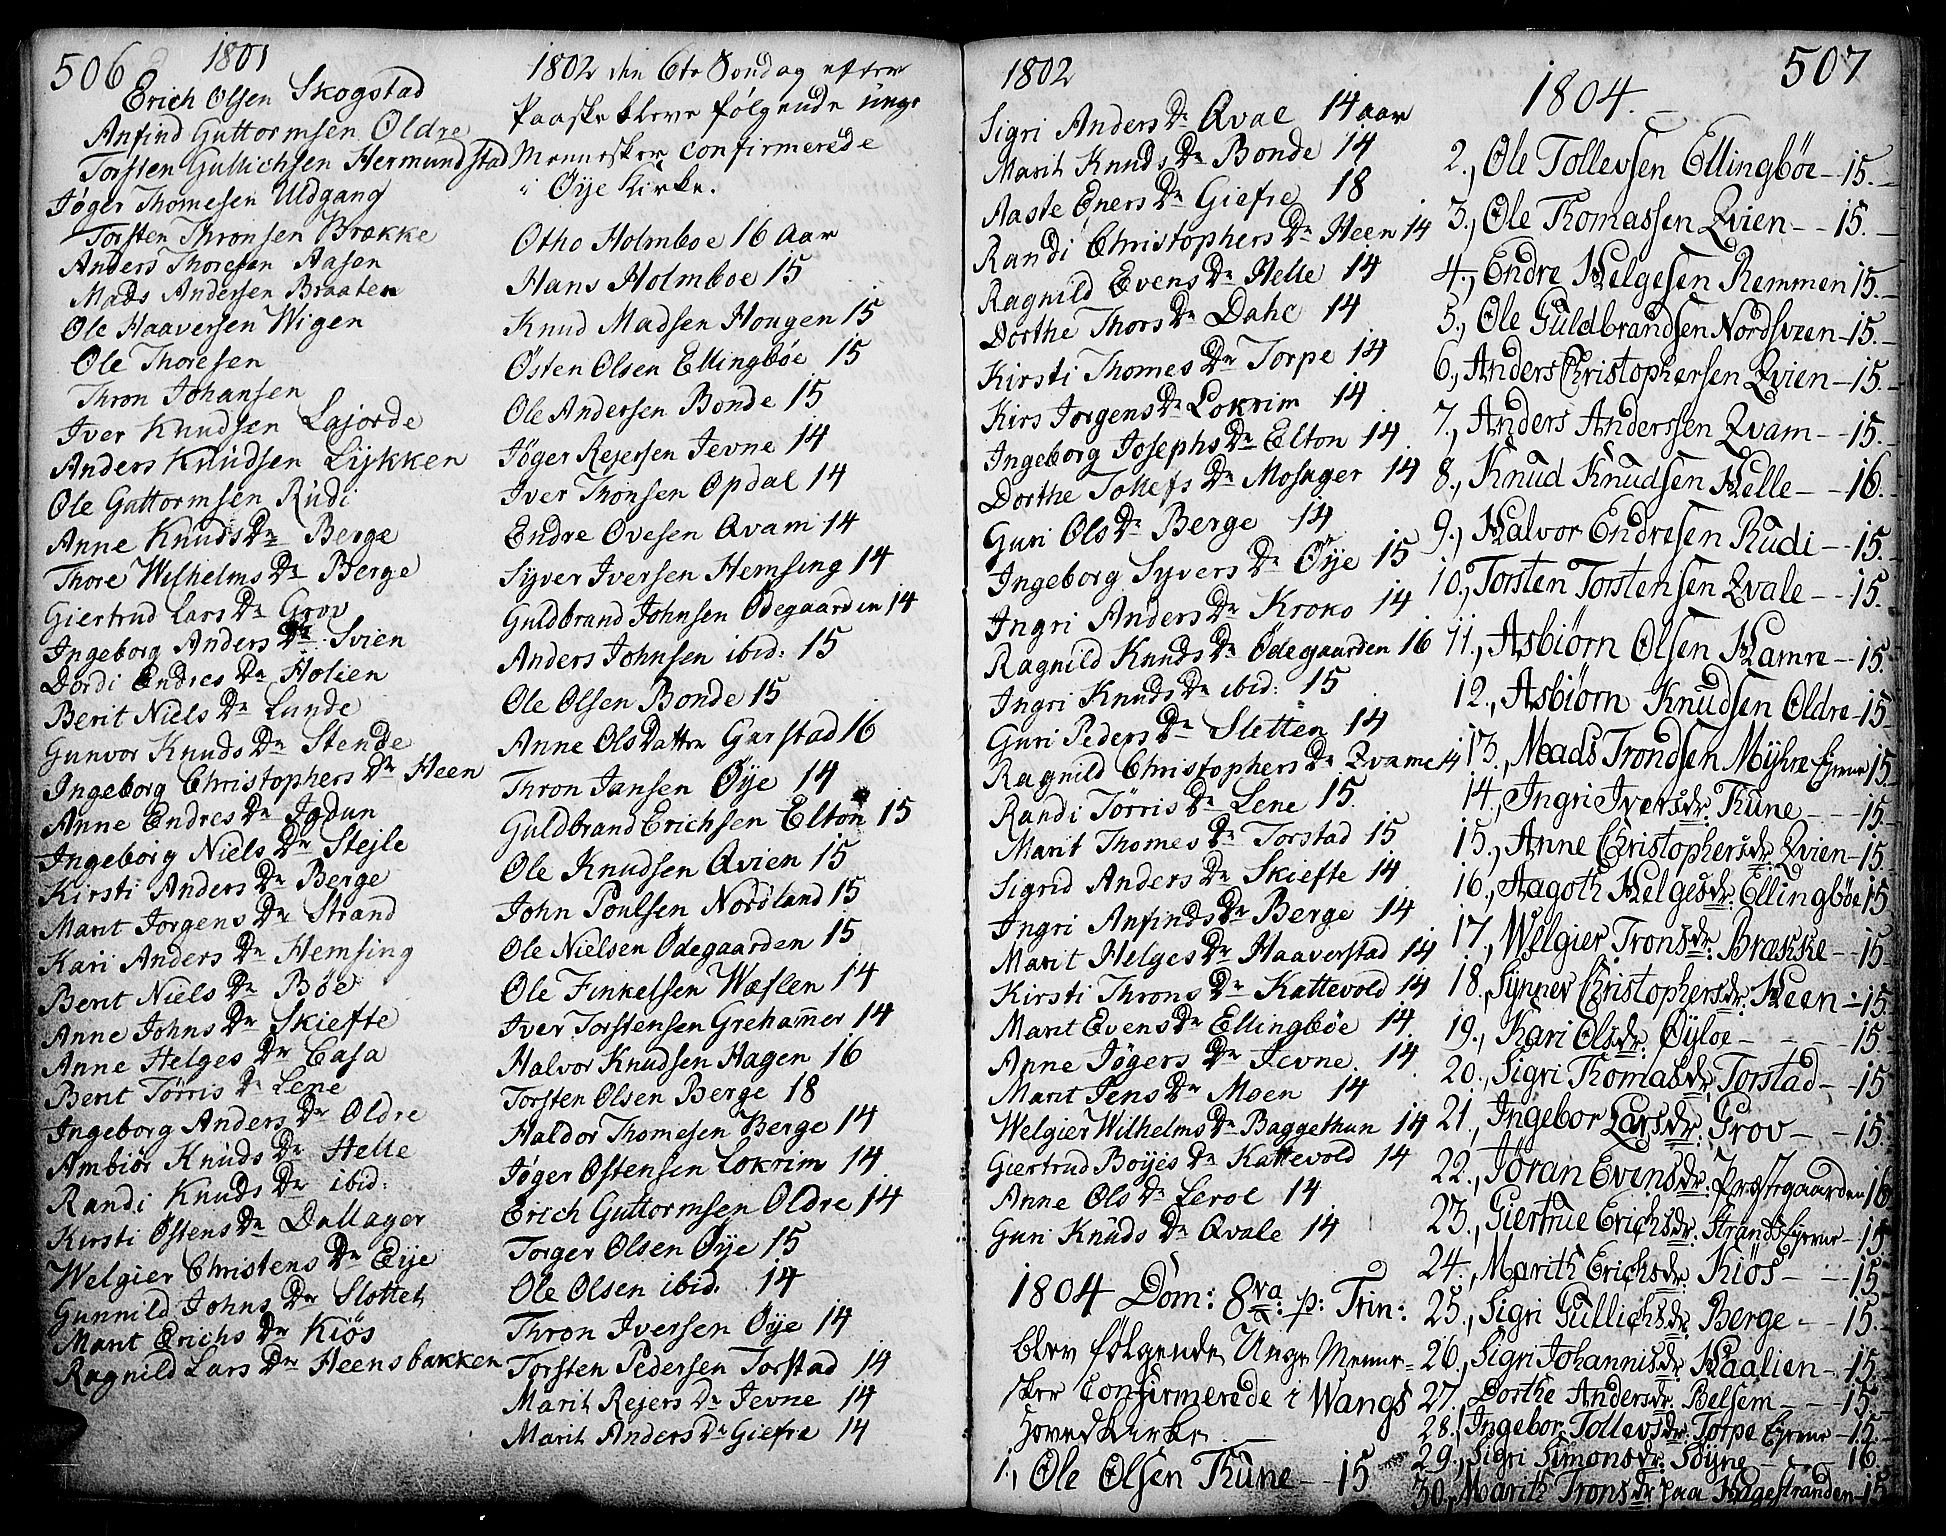 506
1801
Erich Olsen Skogstad
Anfind Guttormsen Oldre
Torsten Gullichsen Hermundstad
Jøger Thomesen Uldgang
Torsten Thronsen Brække
Anders Thoresen Aasen
Mads Andersen Braaten
Ole Haaversen Wigen
Ole Thoresen
Thron Johansen
Iver Knudsen Lajorde
Anders Knudsen Lykken
Ole Guttormsen Rudi
Anne Knuds Dr Berge
Thore Wilhelms Dr Berge
Giertrud Lars Dr Grov
Ingeborg Anders Dr Svien
Dordi Endres Dr Holien
Berit Niels Dr Lunde
Gunvor Knuds Dr Stende
Ingeborg Christophers Dr Heen
Anne Endres Dr Jødun
Ingeborg Niels Dr Stejle
Kirsti Anders Dr Berge
Marit Jorgens Dr Strand
Kari Anders Dr Hemsing
Berit Niels Dr Bøe
Anne Johns Dr Skiefte
Anne Helges Dr Casa
Berit Tørris Dr Lene
Ingeborg Anders Dr Oldre
Ambiør Knuds Dr Helle
Randi Knuds Dr ibid:
Kirsti Østens Dr Dallager
Welgier Christens Dr Eije
Gunnild Johns Dr Slottet
Marit Erichs Dr Kiøs
Ragnild Lars Dr Heensbakken
1802 den 6te Søndag efter
Paaske bleve følgende unge
Mennesker confirmerede
i Øye Kirke.
Otho Holmboe 16 Aar
Hans Holmboe 15
Knud Madsen Hougen 15
Østen Olsen Ellingbøe 15
Ole Andersen Bonde 15
Jøger Rejersen Jevne 14
Iver Thonsen Opdal 14
Endre Ovesen Qvam 14
Syver Iversen Hemsing 14
Guldbrand Johnsen Ødegaarden 14
Anders Johnsen ibid: 15
Ole Olsen Bonde 15
Anne Ols Datter Garstad 16
Thron Jansen Øye 14
Guldbrand Erichsen Elton 15
Ole Knudsen Qvien 15
John Poulsen Nordland 15
Ole Nielsen Ødegaarden 15
Ole Finkelsen Wæslen 14
Iver Torstensen Grehamer 14
Halvor Knudsen Hagen 16
Torsten Olsen Berge 18
Haldor Thomesen Berge 14
Jøger Østensen Lokrim 14
Erich Guttormsen Oldre 14
Torger Olsen Øye 15
Ole Olsen ibid. 14
Thron Iversen Øye 14
Torsten Pedersen Torstad 14
Marit Rejers Dr Jevne 14
Marit Anders Dr Giefre 14
1802
Sigri Anders Dr Qval 14 aar
Marit Knuds Dr Bonde 14
Aaste Eners Dr Giefre 18
Randi Christophers Dr Heen 14
Ragnild Evens Dr Helle 14
Dorthe Thors Dr Dahl 14
Kirsti Thomes Dr Torpe 14
Kirs Jorgens Dr Lokrim 14
Ingeborg Josephs Dr Elton 14
Dorthe Tollefs Dr Mosager 14
Guri Ols Dr Berge 14
Ingeborg Syvers Dr Øye 15
Ingri Anders Dr Kroko 14
Ragnild Knuds Dr Ødegaarden 16
Ingri Knuds Dr ibid: 15
Guri Peders Dr Sletten 14
Ragnild Christophers Dr Qvame 14
Randi Tørris Dr Lene 15
Marit Thomes Dr Torstad 15
Sigrid Anders Dr Skiefte 14
Ingri Anfinds Dr Berge 14
Marit Helges Dr Haaverstad 14
Kirsti Throns Dr Kattevold 14
Marit Evens Dr Ellingbøe 14
Anne Jøgers Dr Jevne 14
Marit Jens Dr Moen 14
Welgier Wilhelms Dr Baggethun 14
Giertrud Boyes Dr Kattevold 14
Anne Ols Dr Leroe 14
Guri Knuds Dr Qvale 14
1804 Dom: 8va p: Trin:
blev følgende Unge Menne=
sker Confirmerede i Wangs
Hovedkirke.
1., Ole Olsen Thune - 15
507
1804.
2., Ole Tollevsen Ellingbøe - 15.
3., Ole Thomassen Qvien - 15.
4., Endre Helgesen Remmen 15.
5., Ole Guldbrandsen Nordsveen - 15.
6., Anders Christophersen Qvien - 15.
7., Anders Anderssen Qvam - 15.
8., Knud Knudsen Helle - 16.
9., Halvor Endresen Rudi - 15.
10., Torsten Torstensen Qvale - 15.
11., Asbiørn Olsen Hamre - 15.
12., Asbiørn Knudsen Oldre - 15
13., Mads Trondsen Myhre Eierne 15
14., Ingri Iversdr. Thune - 15
15., Anne Christophersdr. Qvien - 15
16., Aagoth Helgesdr. Ellingbøe 15
17., Welgier Tronsdr. Brække - 15
18., Synnev Christophersdr. Heen - 15
19., Kari Olsdr. Øyloe - 15.
20., Sigri Thomasdr. Torstad - 15
21., Ingebor Larsdr. Grov - 15
22., Jøran Evensdr. Præstegaarden 16
23., Giertrue Erichsdr. Strands Eierne - 15
24., Marith Erichsdr. Kiøs - 15
25., Sigri Gullichsdr. Berge - 15.
26., Sigri Johannisdr. Haalien - 15
27., Dorthe Andersdr. Belsem - 15.
28., Ingebor Tollevsdr. Torpe Eierne - 15.
29., Sigri Simonsdr. Søyne - 16.
30., Marith Tronsdr. paa Hagestranden - 15